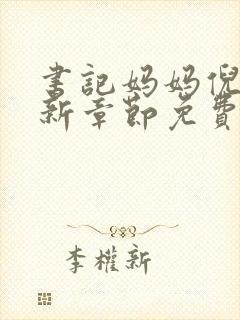 书记妈妈倪
新章节免费
李權新